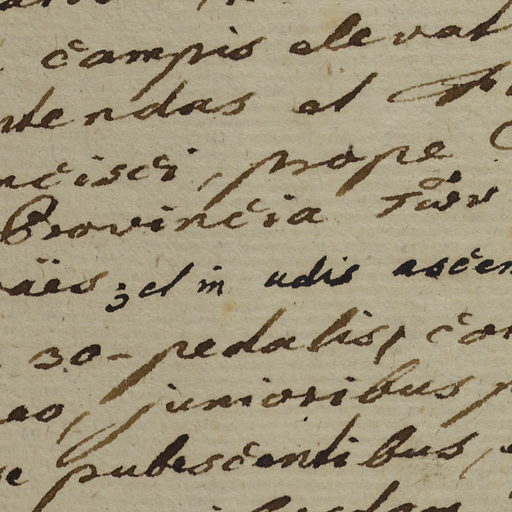 campis eleval
ntendas et
ncisci, prope
Provincia
äes; et in udis ascen
30-pedalis, co
eo, junioribus p
se pubescentibus,